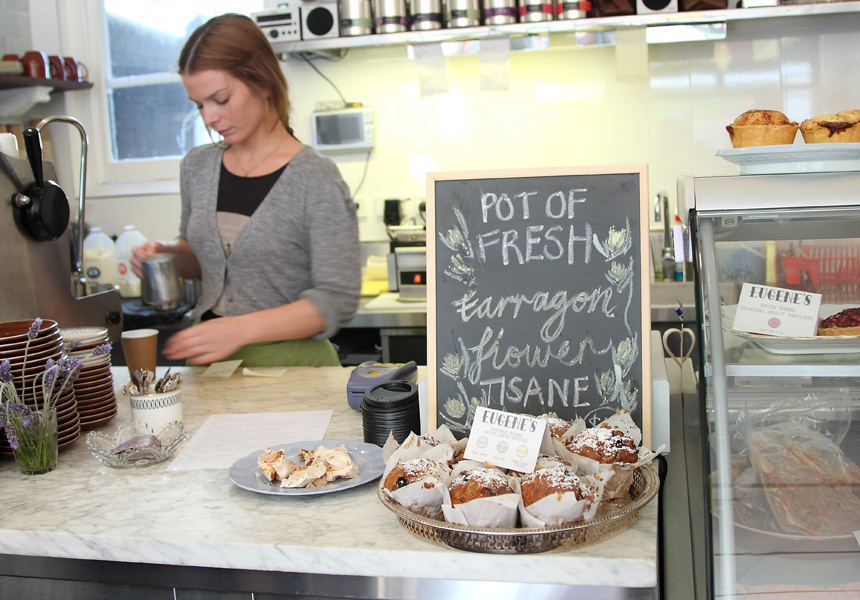 POT OF
FRESH
tarragon
flower
TISANE
EUGENE'S
EUGENE'S